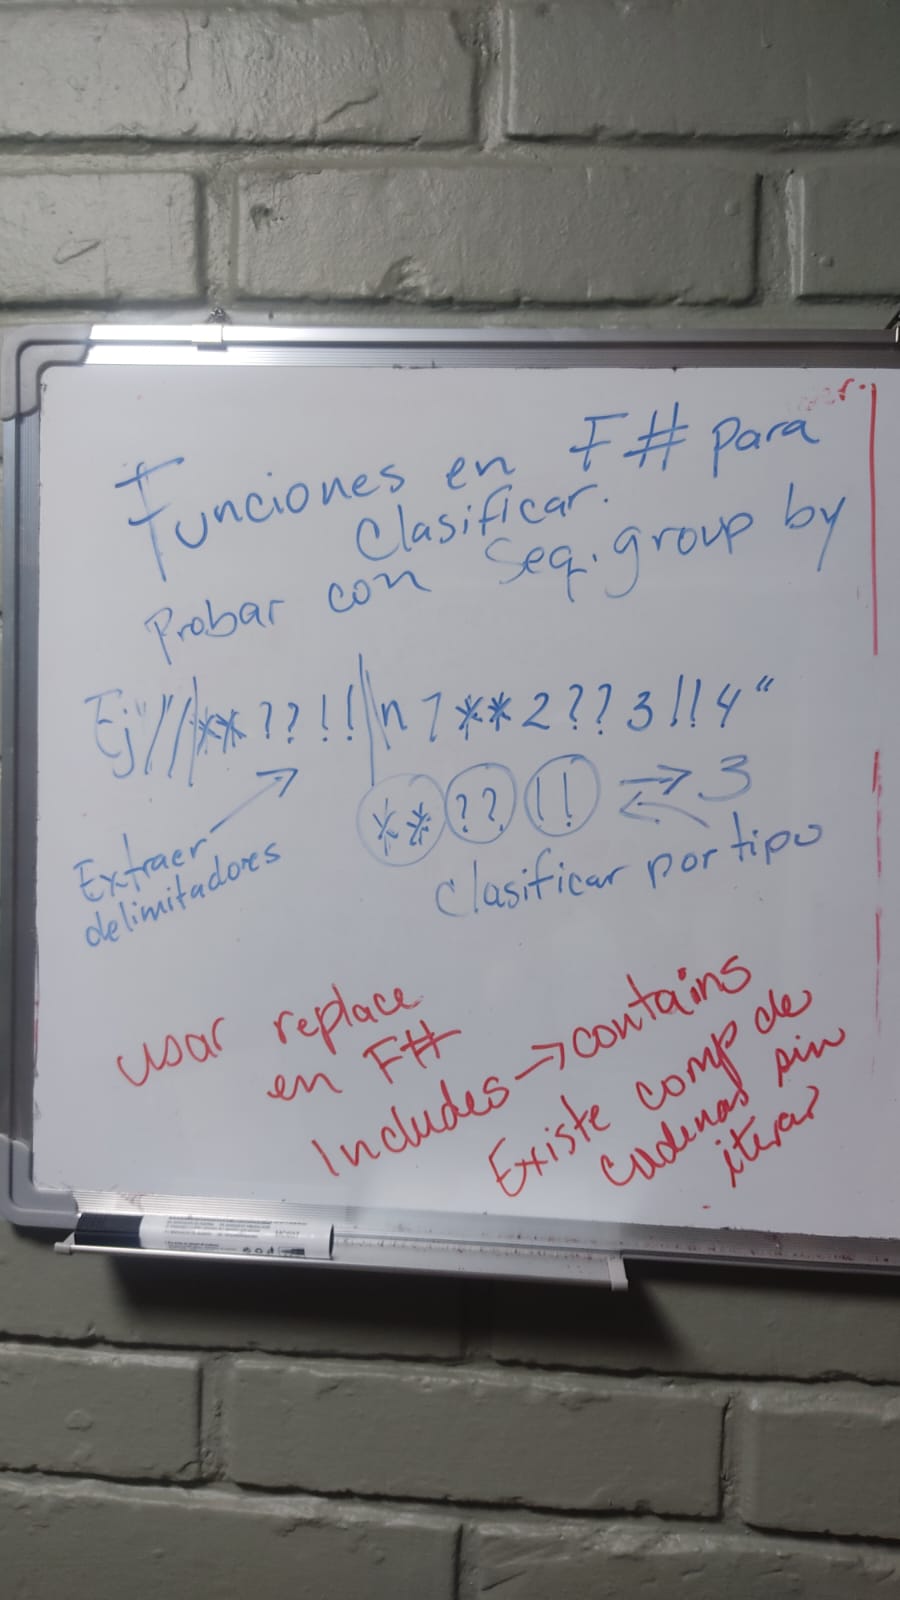 Funciones en F# para
Clasificar.
Probar con Seq.group by
Ej "//**??!!\n 1**2??3!!4"
** ?? !! 3
Extraer
delimitadores
Clasificar por tipo
usar replace
en F#
Includes → contains
Existe comp de
cadenas sin
iterar